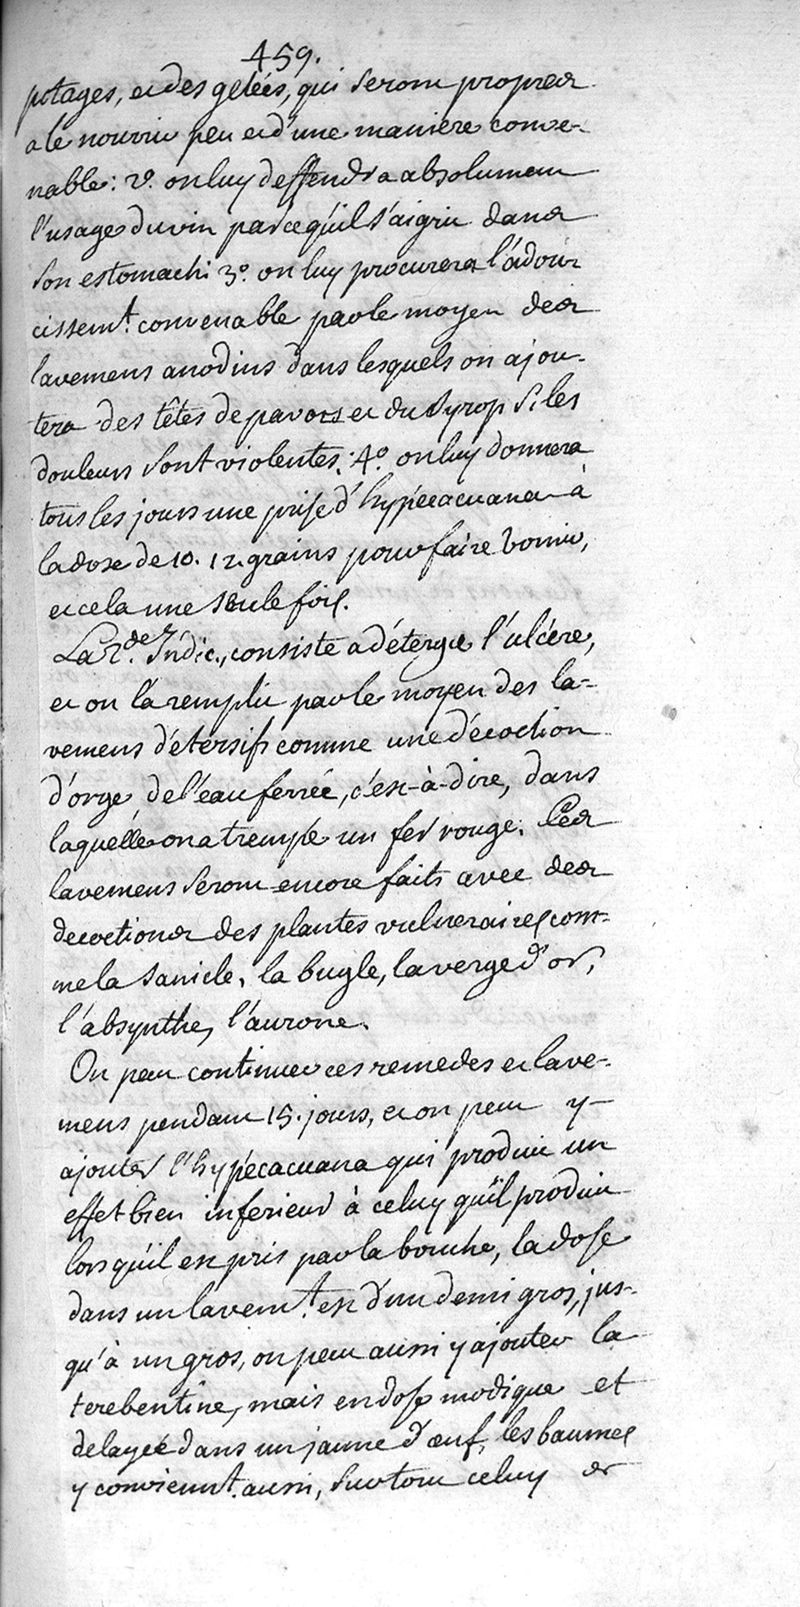 459.
potages, et des gelées, qui seront propres
a le nourrir peu et d'une maniere conve-
nable: 2°. on luy deffendra absolument
l'usage du vin parcequ'il s'aigrit dans
son estomach: 3°. on luy procurera l'adoux
cissemt. convenable par le moyen des
lavemens anodins dans lesquels on ajou-
tera des têtes de pavots et du syrop si les
douleurs sont violentes: 4°. on luy donnera
tous les jours une prise d'hypecacuana à
la dose de 10. 12. grains pour faire vomir,
et cela une seule fois.
La 2.de Indic., consiste a déterger l'ulcère,
et on la remplit par le moyen des la-
vemens détersifs comme une décoction
d'orge, de l'eau ferrée, c'est-à-dire, dans
laquelle on a trempé un fer rouge. Ces
lavemens seront encore faits avec des
decoctions des plantes vulneraires com-
me la sanicle, la bugle, la verge d'or,
l'absynthe, l'aurone.
On peut continuer ces remedes et lave-
mens pendant 15. jours, et on peut y
ajouter l'hypécacuana qui produit un
effet bien inferieur à celuy qu'il produit
lors qu'il est pris par la bouche, la dose
dans un lavemt. est d'un demi gros, jus-
qu'à un gros, on peut aussi y ajouter la
terebentine, mais en dose modique et
delayée dans un jaune d'œuf, les baumes
y conviennt. aussi, surtout celuy de